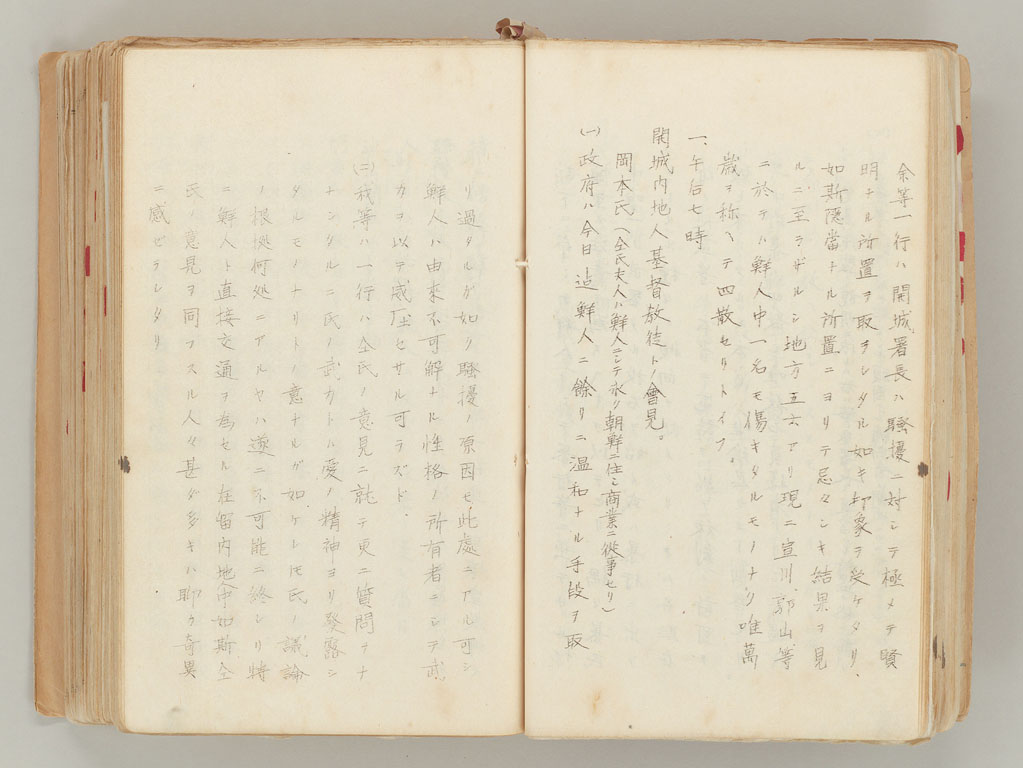 余等一行ハ開城署長ハ騒擾ニ対シテ極メテ賢
明ナル所置ヲ取ラレタル如キ印象ヲ受ケタリ、
如斯隠當ナル所置ニヨリテ忌々シキ結果ヲ見
ルニ至ラザルシ地方五六アリ現ニ宣川郭山等
ニ於テハ鮮人中一名モ傷キタルモノナク唯萬
歳ヲ称ヘテ四散セリトイフ。
一、午后七時
開城内地人基督教徒トノ會見。
岡本氏(仝氏夫人ハ鮮人ニシテ永ク朝鮮ニ住ミ商業ニ従事セリ)
(一)政府ハ今日迠鮮人ニ餘リニ温和ナル手段ヲ取
リ過タルガ如ク騒擾ノ原因モ此處ニアル可シ
鮮人ハ由来不可解ナル性格ノ所有者ニシテ武
力ヲ以テ威圧セサル可ラズト.
(二)我等ハ一行ハ仝氏ノ意見ニ就テ更ニ質問ヲナ
ナシタルニ氏ノ武力トハ愛ノ精神ヨリ発露シ
タルモノナリトノ意ナルガ如ケレ𪜈氏ノ議論
ノ根拠何処ニアルヤハ遂ニ不可能ニ終レリ特
ニ鮮人ト直接交通ヲ為セル在留内地中如斯仝
氏ノ意見ヲ同フスル人々甚ダ多キハ聊カ奇異
ニ感ゼラレタリ.